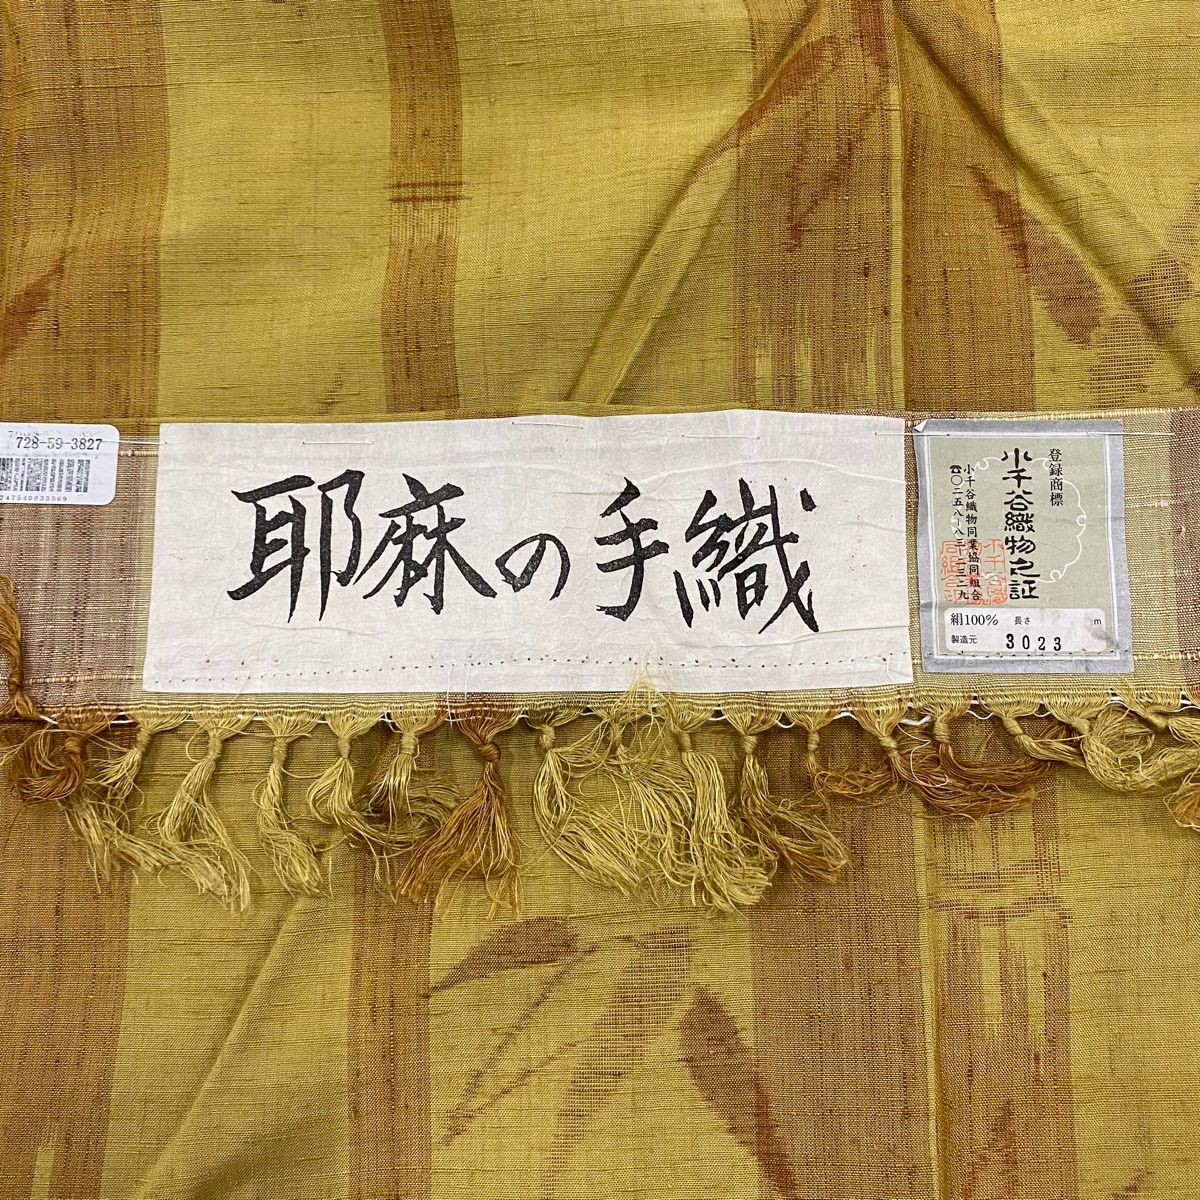 728-59-3827
247540035369
耶麻の手織
登録商標
小千谷織物之証
小千谷織物同業協同組合
☎〇二五八-八三-二三二九
絹100% 長さ m
製造元 3023